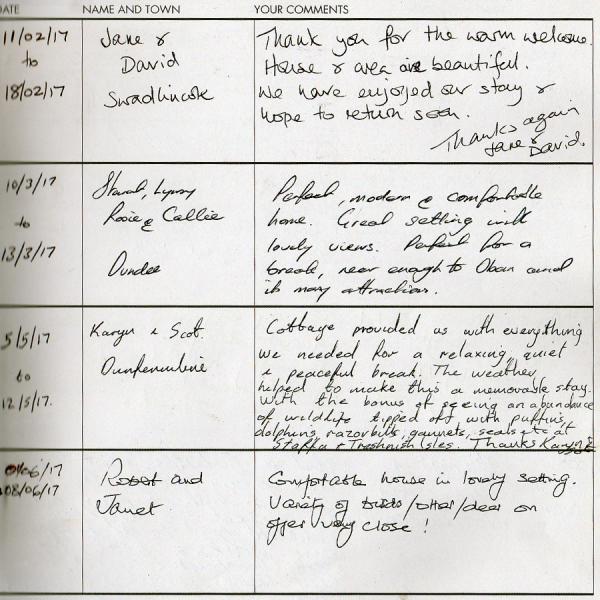 DATE NAME AND TOWN YOUR COMMENTS
11/02/17
to
18/02/17
Jane &
David
Swadlincote
Thank you for the warm welcome.
House & area are beautiful.
We have enjoyed our stay &
hope to return soon.
Thanks again
Jane &
David.
10/3/17
to
13/3/17
Lynsy
Rosie & Callie
Dundee
Perfect, modern & comfortable
home. Great setting with
lovely views. Perfect for a
break, near enough to Oban and
its many attractions.
5/5/17
to
12/5/17.
Karyn & Scot.
Dunfermline
Cottage provided us with everything
we needed for a relaxing, quiet
& peaceful break. The weather
helped to make this a memorable stay.
With the bonus of seeing an abundance
of wildlife tipped off with puffins,
dolphins, razorbills, gannets, seals etc at
Staffa & Treshnish Isles. Thanks Karyn &
/06/17
08/06/17
Robert and
Janet
Comfortable house in lovely setting.
Variety of birds/otter/deer on
offer very close!